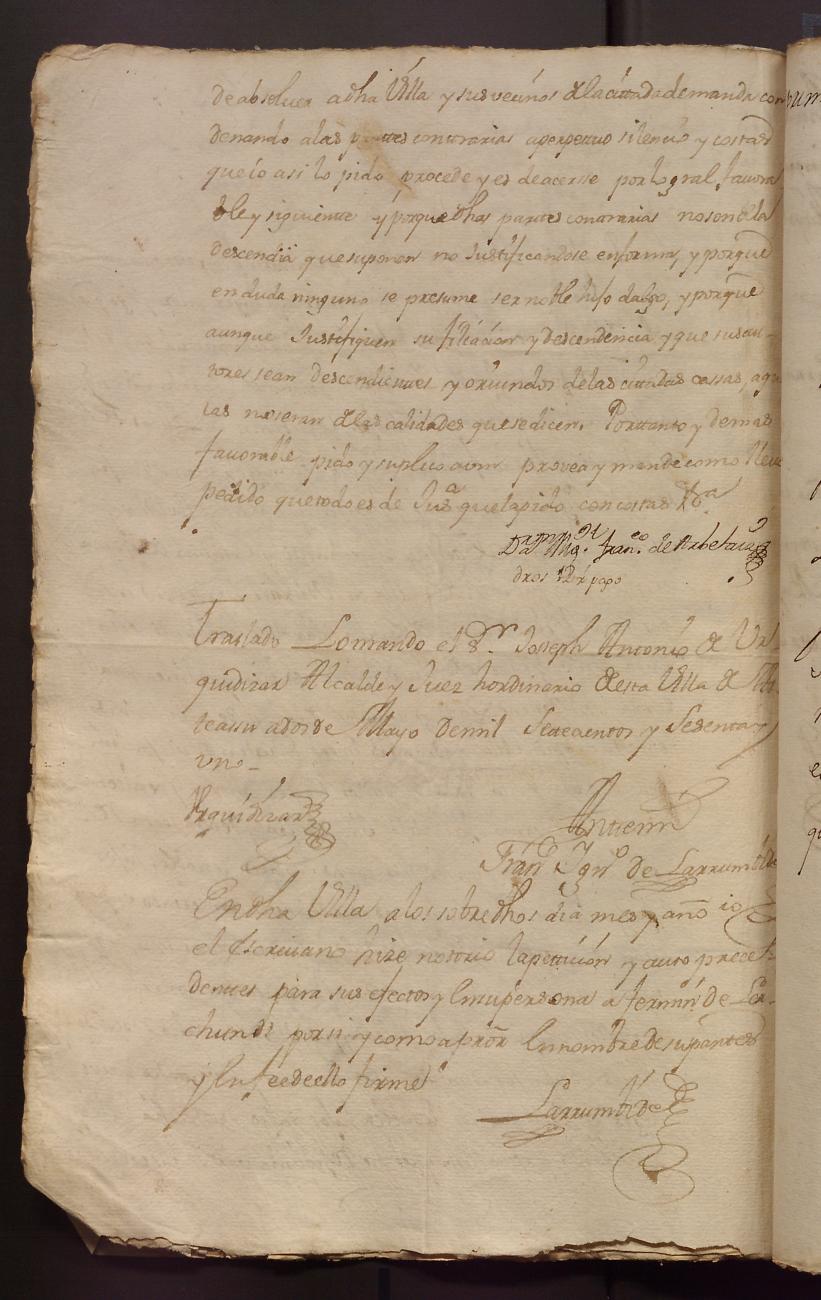 de absoluer a dha Villa y sus vecinos de la cittada demanda con
denando a las parttes conttrarias a perpettuo silencio y costtas
que io asi lo pido procede y es de acerse por lo gral fauora
ble y siguientte y porque dhas parttes conttrarias no son de la
descendiā que suponen no justificandose en forma, y porque
en duda ninguno se presume ser noble hijo dalgo, y porque
aunque Justifiquen su filiacion y descendencia y que sus au-
ttores sean descendienttes y oriundos de las cittadas cassas, aque
llas no seran de las calidades que se dicen. Porttanto y demas
fauorable pido y suplico a vm provea y mande como lleuo
pedido que ttodo es de Jusª que la pido con costtas Vª
Franco. de
Traslado Lo mando el Sr. Joseph Antonio de Vr-
quidizar Alcalde y Juez hordinario de esta Villa de
a dos de Mayo de mil Settecientos y Sesenta y
vno_
Vrquidizar
Antemi
Franco Igno de Larrumbide
En dha Villa a los sobre dhos dia mes y año io
el Escriuano hize nottorio la petticion y autto prece-
denttes para sus efectos y en su persona a Fermin de Ler-
chundi por si y como a pror En nombre de sus parttes
y En fee de ello firme
Larrumbide